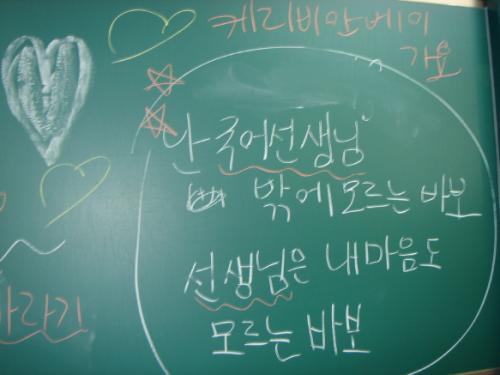 케리비안베이
가요
난 국어선생님
밖에 모르는 바보
선생님은 내마음도
모르는 바보